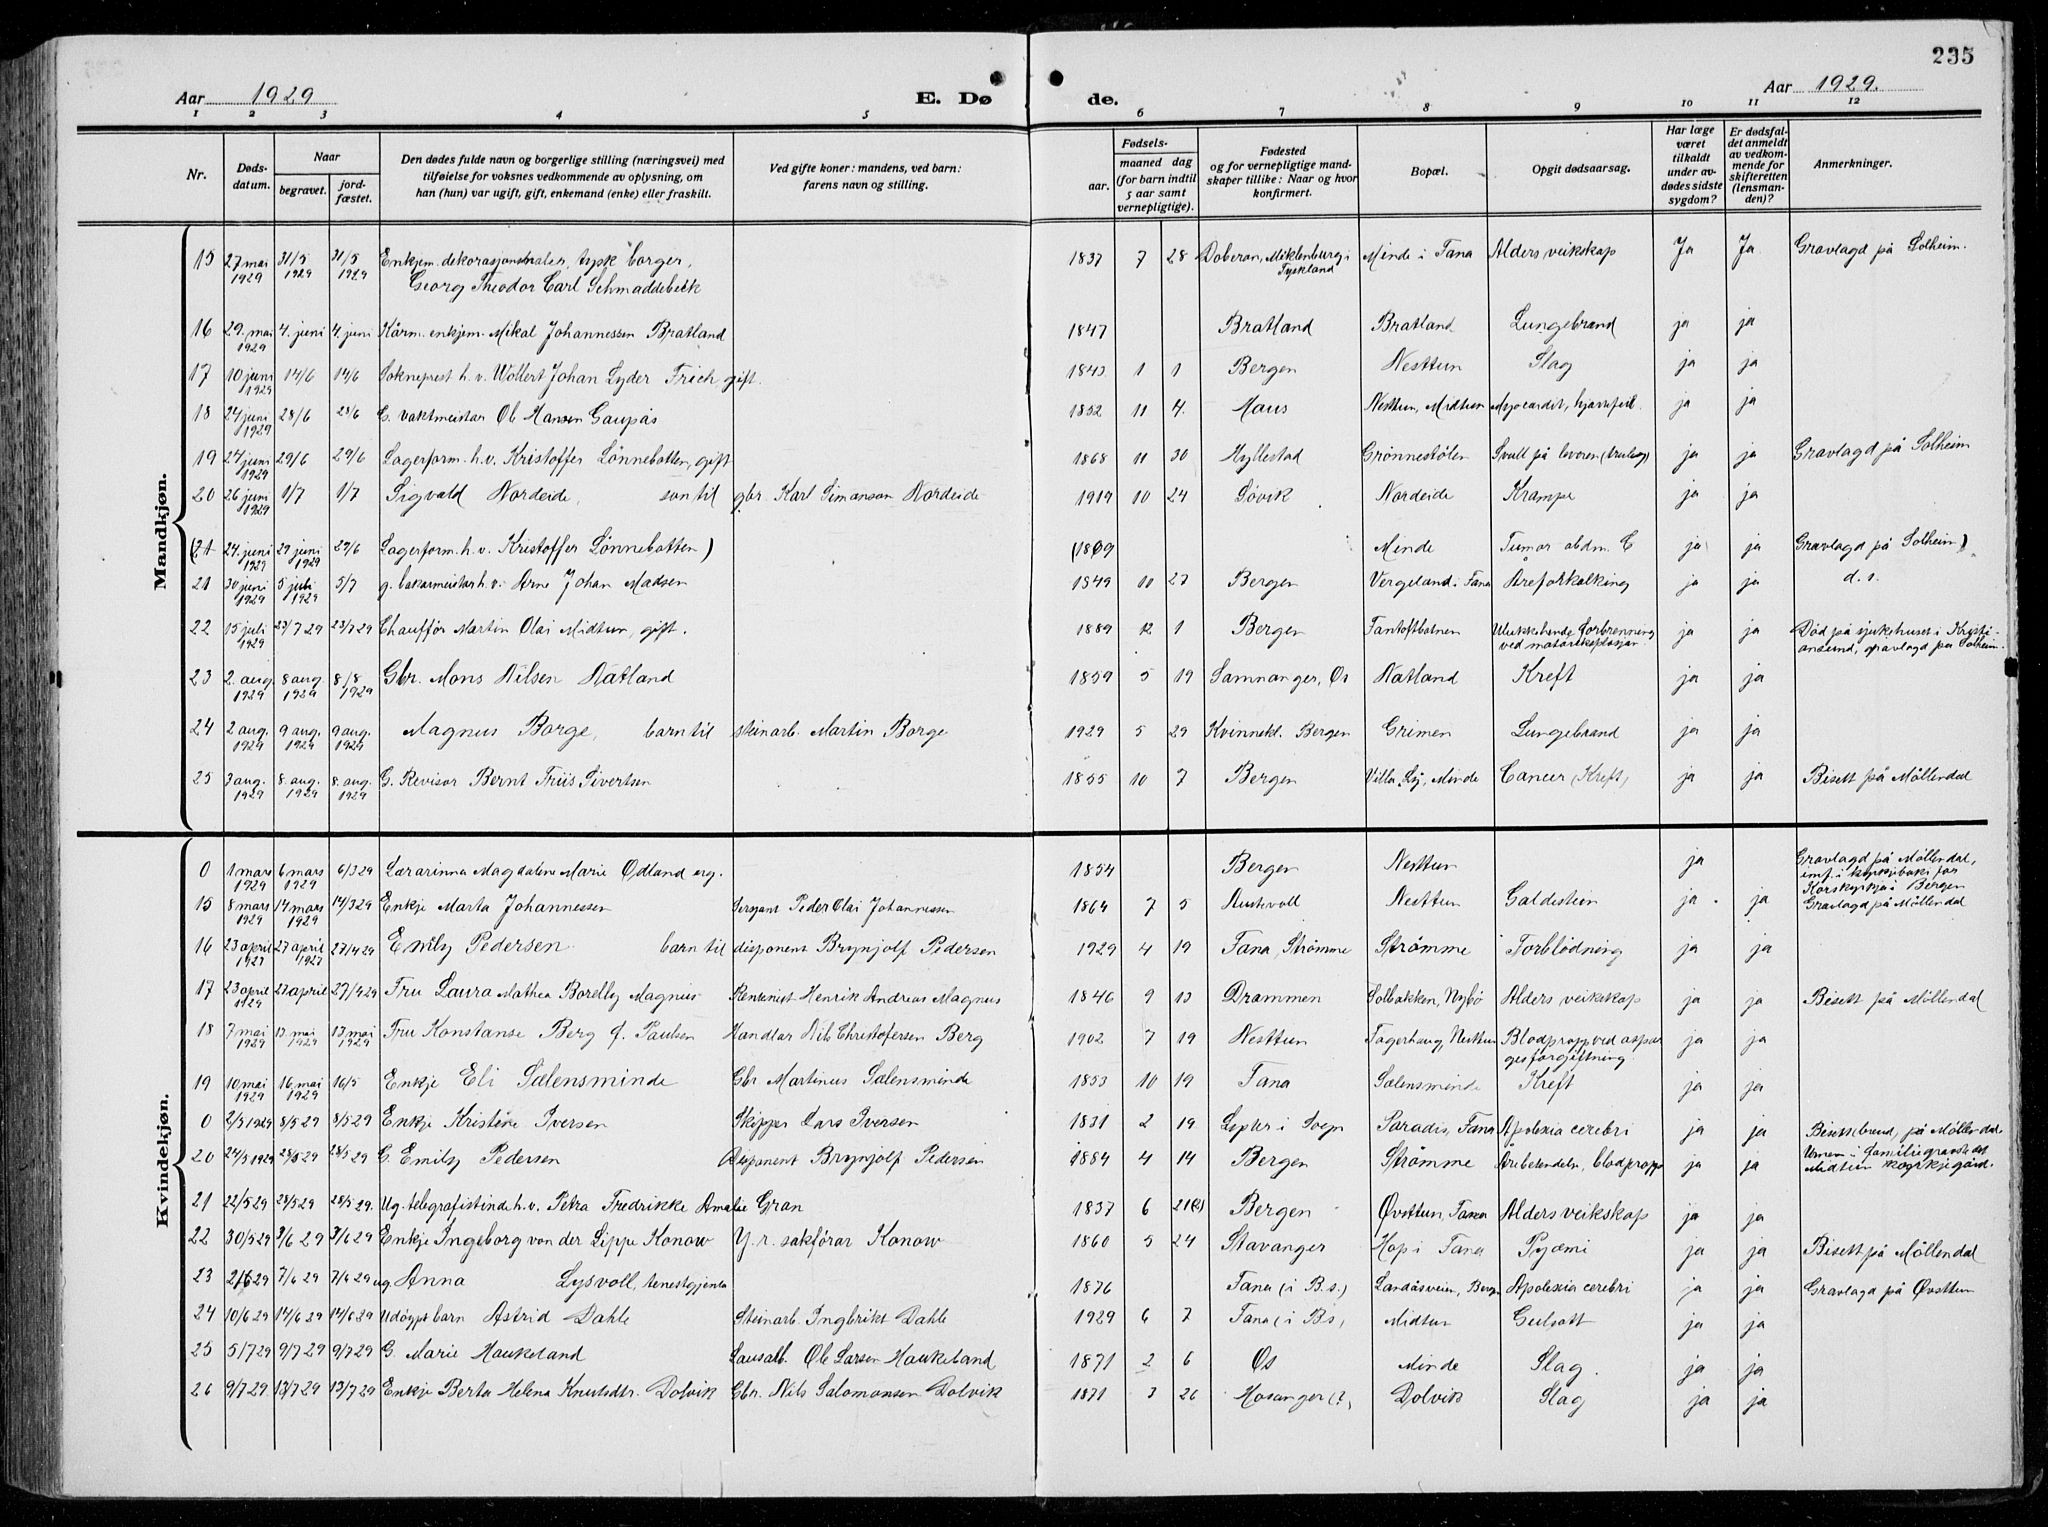 235
Aar 1929
E. Dø
de.
Aar 1929.
1 2 3 4 5 6 7 8 9 10 11 12
Nr.
Døds-
datum.
Naar
begravet.
jord-
fæstet.
Den dødes fulde navn og borgerlige stilling (næringsvei) med
tilføielse for voksnes vedkommende av oplysning, om
han (hun) var ugift, gift, enkemand (enke) eller fraskilt.
Ved gifte koner: mandens, ved barn:
farens navn og stilling.
Fødsels-
aar.
maaned dag
(for barn indtil
5 aar samt
vernepligtige).
Fødested
og for vernepligtige mand-
skaper tillike: Naar og hvor
konfirmert.
Bopæl.
Opgit dødsaarsag.
Har læge
været
tilkaldt
under av-
dødes sidste
sygdom?
Er dødsfal-
det anmeldt
av vedkom-
mende for
skifteretten
(lensman-
den)?
Anmerkninger.
Mandkjøn.
15 27 mai 1929 31/5 1929 31/5 1929 Enkjem. dekorasjonsmaler, tysk borger, 1837 7 28 Doberan, Miklenburg i Tyskland Minde i Fana Alders veikskap Ja Ja Gravlagd på Solheim.
Georg Theodor Carl Schmaddebeck
16 29. mai 1929 4. juni 4. juni Kårm. enkjem. Mikal Johannessen Bratland 1847 Bratland Bratland Lungebrand ja ja
17 10 juni 1929 14/6 14/6 Sokneprest h.v. Wollert Johan Lyder Frich, gift. 1843 1 1 Bergen Nesttun Slag ja ja
18 24 juni 1929 28/6 28/6 G. vaktmeister Ole Hansen Gaupås 1852 11 4. Haus Nesttun, Midtun Myocardit, hjartefeil. ja ja
19 24 juni 1929 29/6 29/6 Lagerform. h.v. Kristoffer Lønnebotten, gift 1868 11 30 Hyllestad Grønnestølen Svull på leveren ja ja Gravlagd på Solheim
20 26 juni 1929 1/7 1/7 Sigvald Nordeide, son til gbr. Karl Simonson Nordeide 1919 10 24 Søvik Nordeide Krampe ja ja
(21 24. juni 1929 29 juni 1929 29/6 Lagerform. h.v. Kristoffer Lønnebotten) (1869 Minde Tumor abdm. C ja ja Gravlagd på Solheim)
21 30 juni 1929 5 juli 1929 5/7 g. bakarmeister h.v. Arne Johan Madsen 1849 10 27 Bergen Vergeland i Fana Åreforkalking ja ja d. s.
22 15 juli 1929 23/7 29 23/7 29 Chauffør Martin Olai Midtun, gift. 1889 12 1 Bergen Fantoftbotnen Ulukkehende forbrenning ved motoreksplosjon ja ja Død på sjukehuset i Kristi-
ansund, gravlagd på Solheim.
23 2. aug. 1929 8 aug. 1929 8/8 1929 Gbr. Mons Nilsen Natland 1859 5 19 Samnanger, Os Natland Kreft ja ja
24 2 aug. 1929 9 aug. 1929 9 aug. 1929 Magnus Borge, barn til steinarb. Martin Borge 1929 5 29 Kvinnekl. Bergen Grimen Lungebrand ja ja
25 3 aug. 1929 8. aug. 1929 8. aug. 1929 G. Revisor Bernt Friis Sivertsen 1855 10 7 Bergen Villa Ly, Minde Cancer (Kreft) ja ja Bisett på Møllendal
Kvindekjøn.
0 1 mars 1929 6 mars 1929 6/3 29 Lærarinna Magdalene Marie Ødland ug. 1854 Bergen Nesttun ja Gravlagd på Møllendal,
innf. i kyrkjeboki for
Korskyrkja i Bergen
15 8 mars 1929 14 mars 1929 14/3 29 Enkje Marta Johannessen Sersjant Peder Olai Johannessen 1864 7 5 Austvoll Nesttun Galdestein ja ja Gravlagd på Møllendal
16 23 april 1929 27 april 1929 27/4 29 Emily Pedersen barn til disponent Brynjolf Pedersen 1929 4 19 Fana, Strømme Strømme Forblødning ja ja
17 23 april 1929 27 april 27/4 29 Fru Laura Mathea Borelly Magnus Rentenist Henrik Andreas Magnus 1846 9 13 Drammen Solbakken, Nybø Alders veikskap ja ja Bisett på Møllendal
18 7 mai 1929 13 mai 1929 13 mai 1929 Fru Konstanse Berg f. Paulsen Handlar Nils Christofersen Berg 1902 7 19 Nesttun Fagerhaug, Nesttun Blodpropp ved aspar-
gesforgiftning ja ja
19 10 mai 1929 16 mai 1929 16/5 Enkje Eli Sælensminde Gbr Martinus Sælensminde 1853 10 19 Fana Sælensminde Kreft ja ja
0 2/5 1929 8/5 29 8/5 29 Enkje Kristine Iversen Skipper Lars Iversen 1831 2 19 i Sogn Paradis, Fana Apolexia cerebri ja ja Bisett på Møllendal.
20 24/5 1929 28/5 29 28/5 29 G. Emily Pedersen Disponent Brynjolf Pedersen 1884 4 14 Bergen Strømme Årebetendelse, blodpropp ja ja Urnen i familiegravstedet
Midtun kyrkjegård.
21 22/5 29 28/5 29 28/5 29. Ug. telegrafistinde h.v. Petra Fredrikke Amalie Gran 1837 6 21(?) Bergen Øvsttun, Fana Alders veikskap ja ja
22 30/5 29 3/6 29 3/6 29 Enkje Ingeborg von der Lippe Konow H.r. sakførar Konow 1860 5 24 Stavanger Hop i Fana Pyæmi ja ja Bisett på Møllendal
23 2/6 29 7/6 29 7/6 29 ug Anna Lysvoll, tenestgjenta 1876 Fana (i B.s.) Landåsveien, Bergen Apolexia cerebri ja ja Gravlagd på Øvsttun
24 10/6 29 14/6 29 14/6 29 Udøypt barn Astrid Dahle Steinarb. Ingbrikt Dahle 1929 6 7 Fana (i B.s) Midtun Gulsott ja ja
25 5/7 29 9/7 29 9/7 29 G. Marie Haukeland Lausarb. Ole Larsen Haukeland 1871 2 6 Os Minde Slag ja ja
26 9/7 29. 13/7 29 13/7 29 Enkje Berta Helena Knutsdtr. Dolvik Gbr. Nils Salomonsen Dolvik 1871 3 26 Hosanger (?) Dolvik Slag ja ja